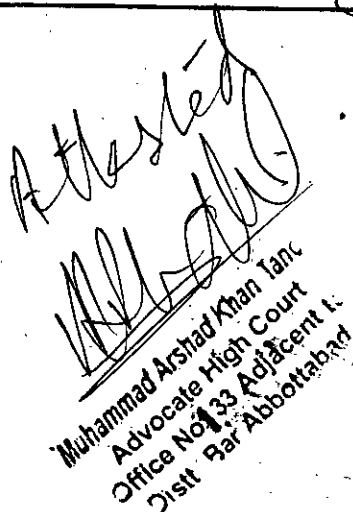 Attested
Muhammad Arshad Khan Tano
Advocate High Court
Office No 133 Adjacent t
Distt Bar Abbottabad